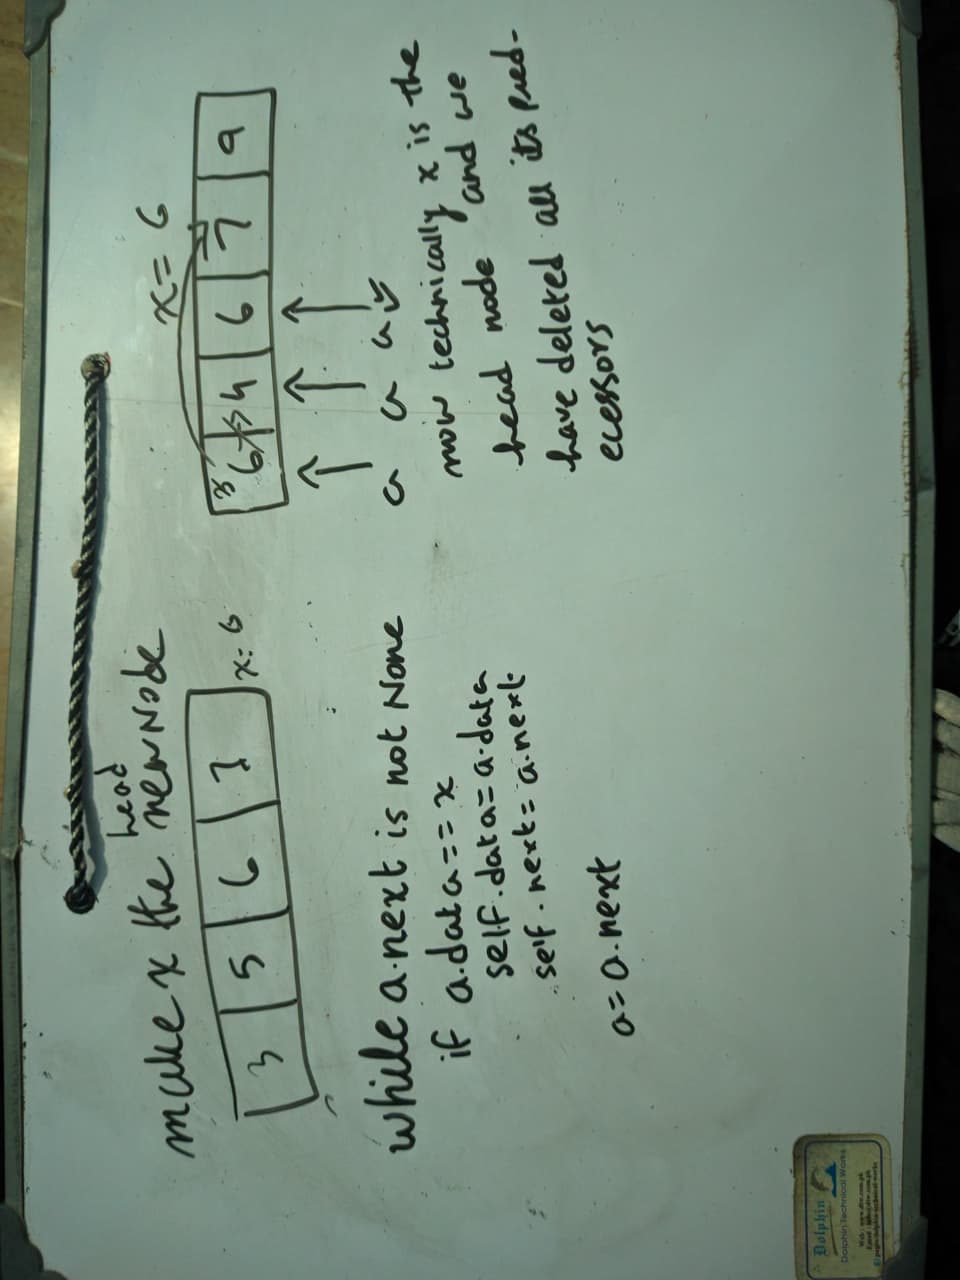 head
make x the new Node
3 5 6 7
x=6
while a.next is not None
if a.data == x
self.data = a.data
self.next = a.next
a = a.next
x = 6
3 6 4 6 7 9
a a a
now technically x is the
head node and we
have deleted all its pred-
ecessors
Dolphin
Dolphin Technical Works